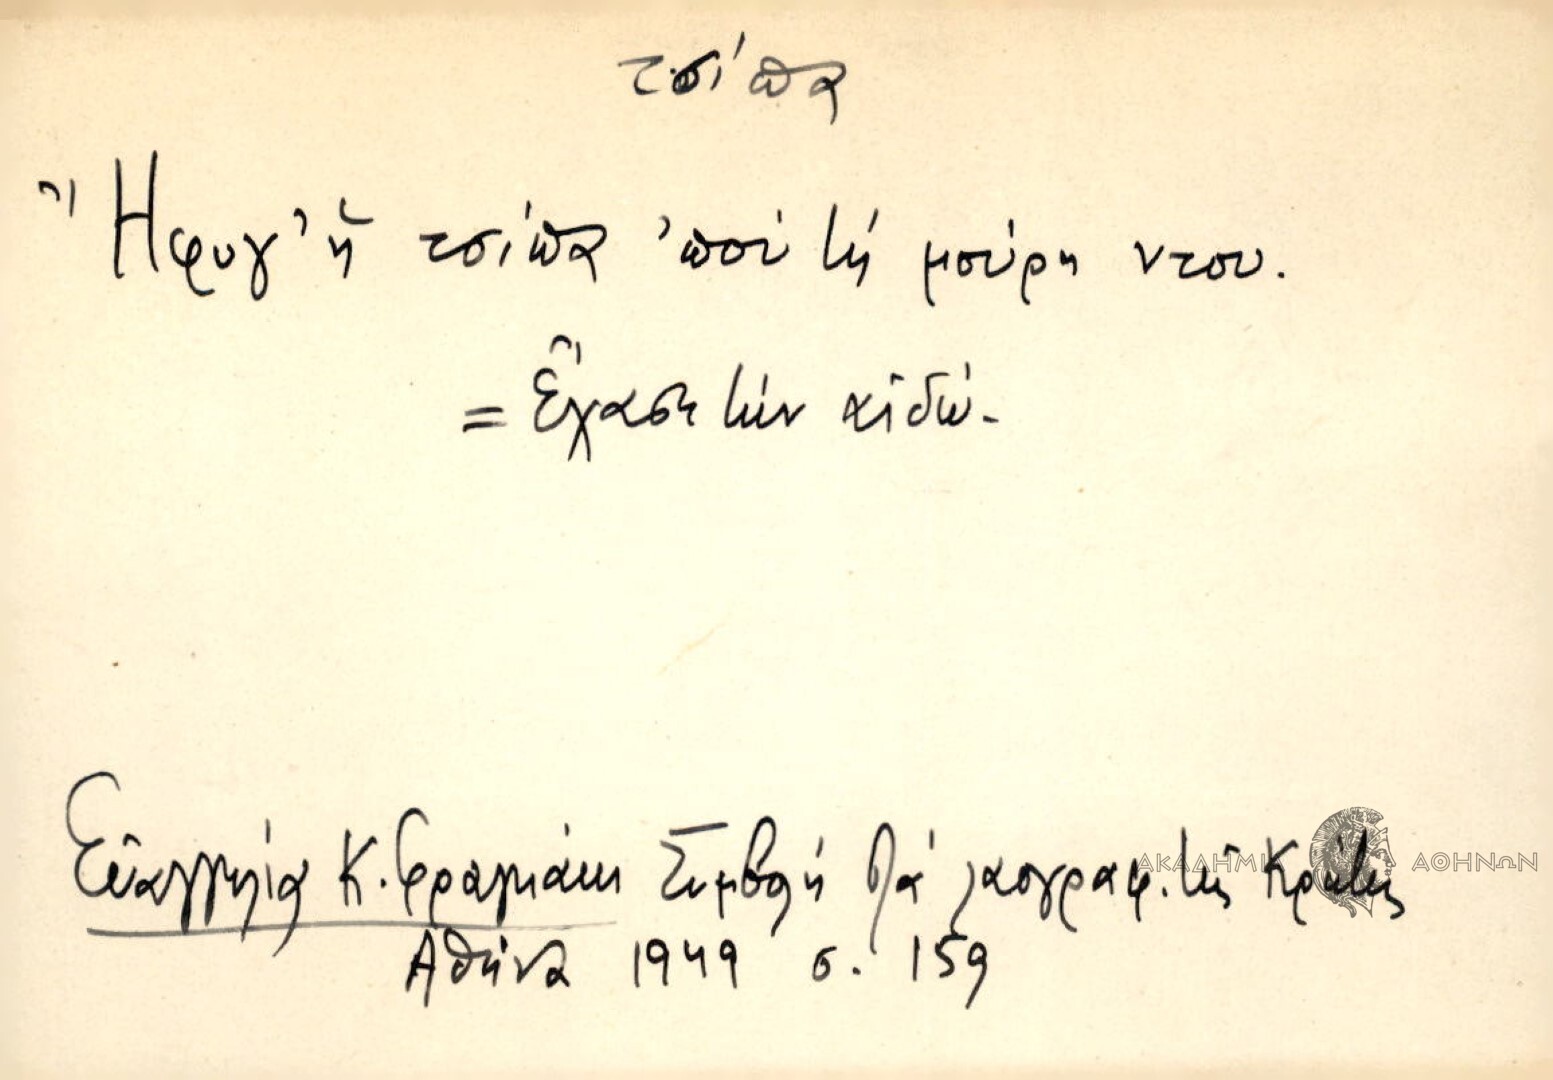 τσίπα
Ἤφυγ' ἡ τσίπα 'ποὺ τὴ μούρη ντου.
= Ἔχασε τὴν αἰδώ.
Εὐαγγελία Κ. Φραγκάκι Συμβολὴ στὰ λαογραφ. τῆς Κρήτης
Ἀθήνα 1949 σ. 159
ΑΚΑΔΗΜΙΑ ΑΘΗΝΩΝ